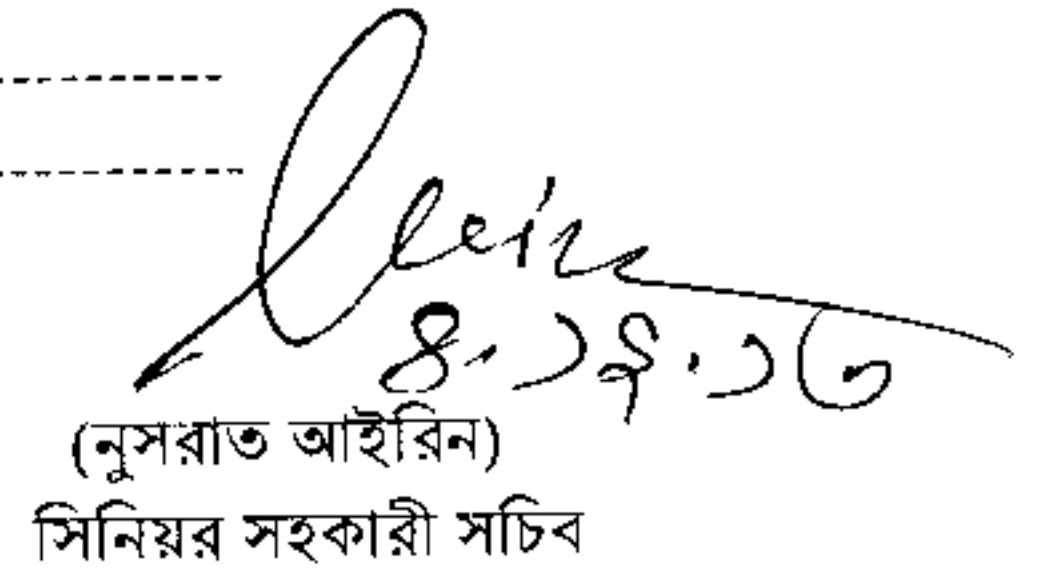 ৪.১২.১৬
(নুসরাত আইরিন)
সিনিয়র সহকারী সচিব